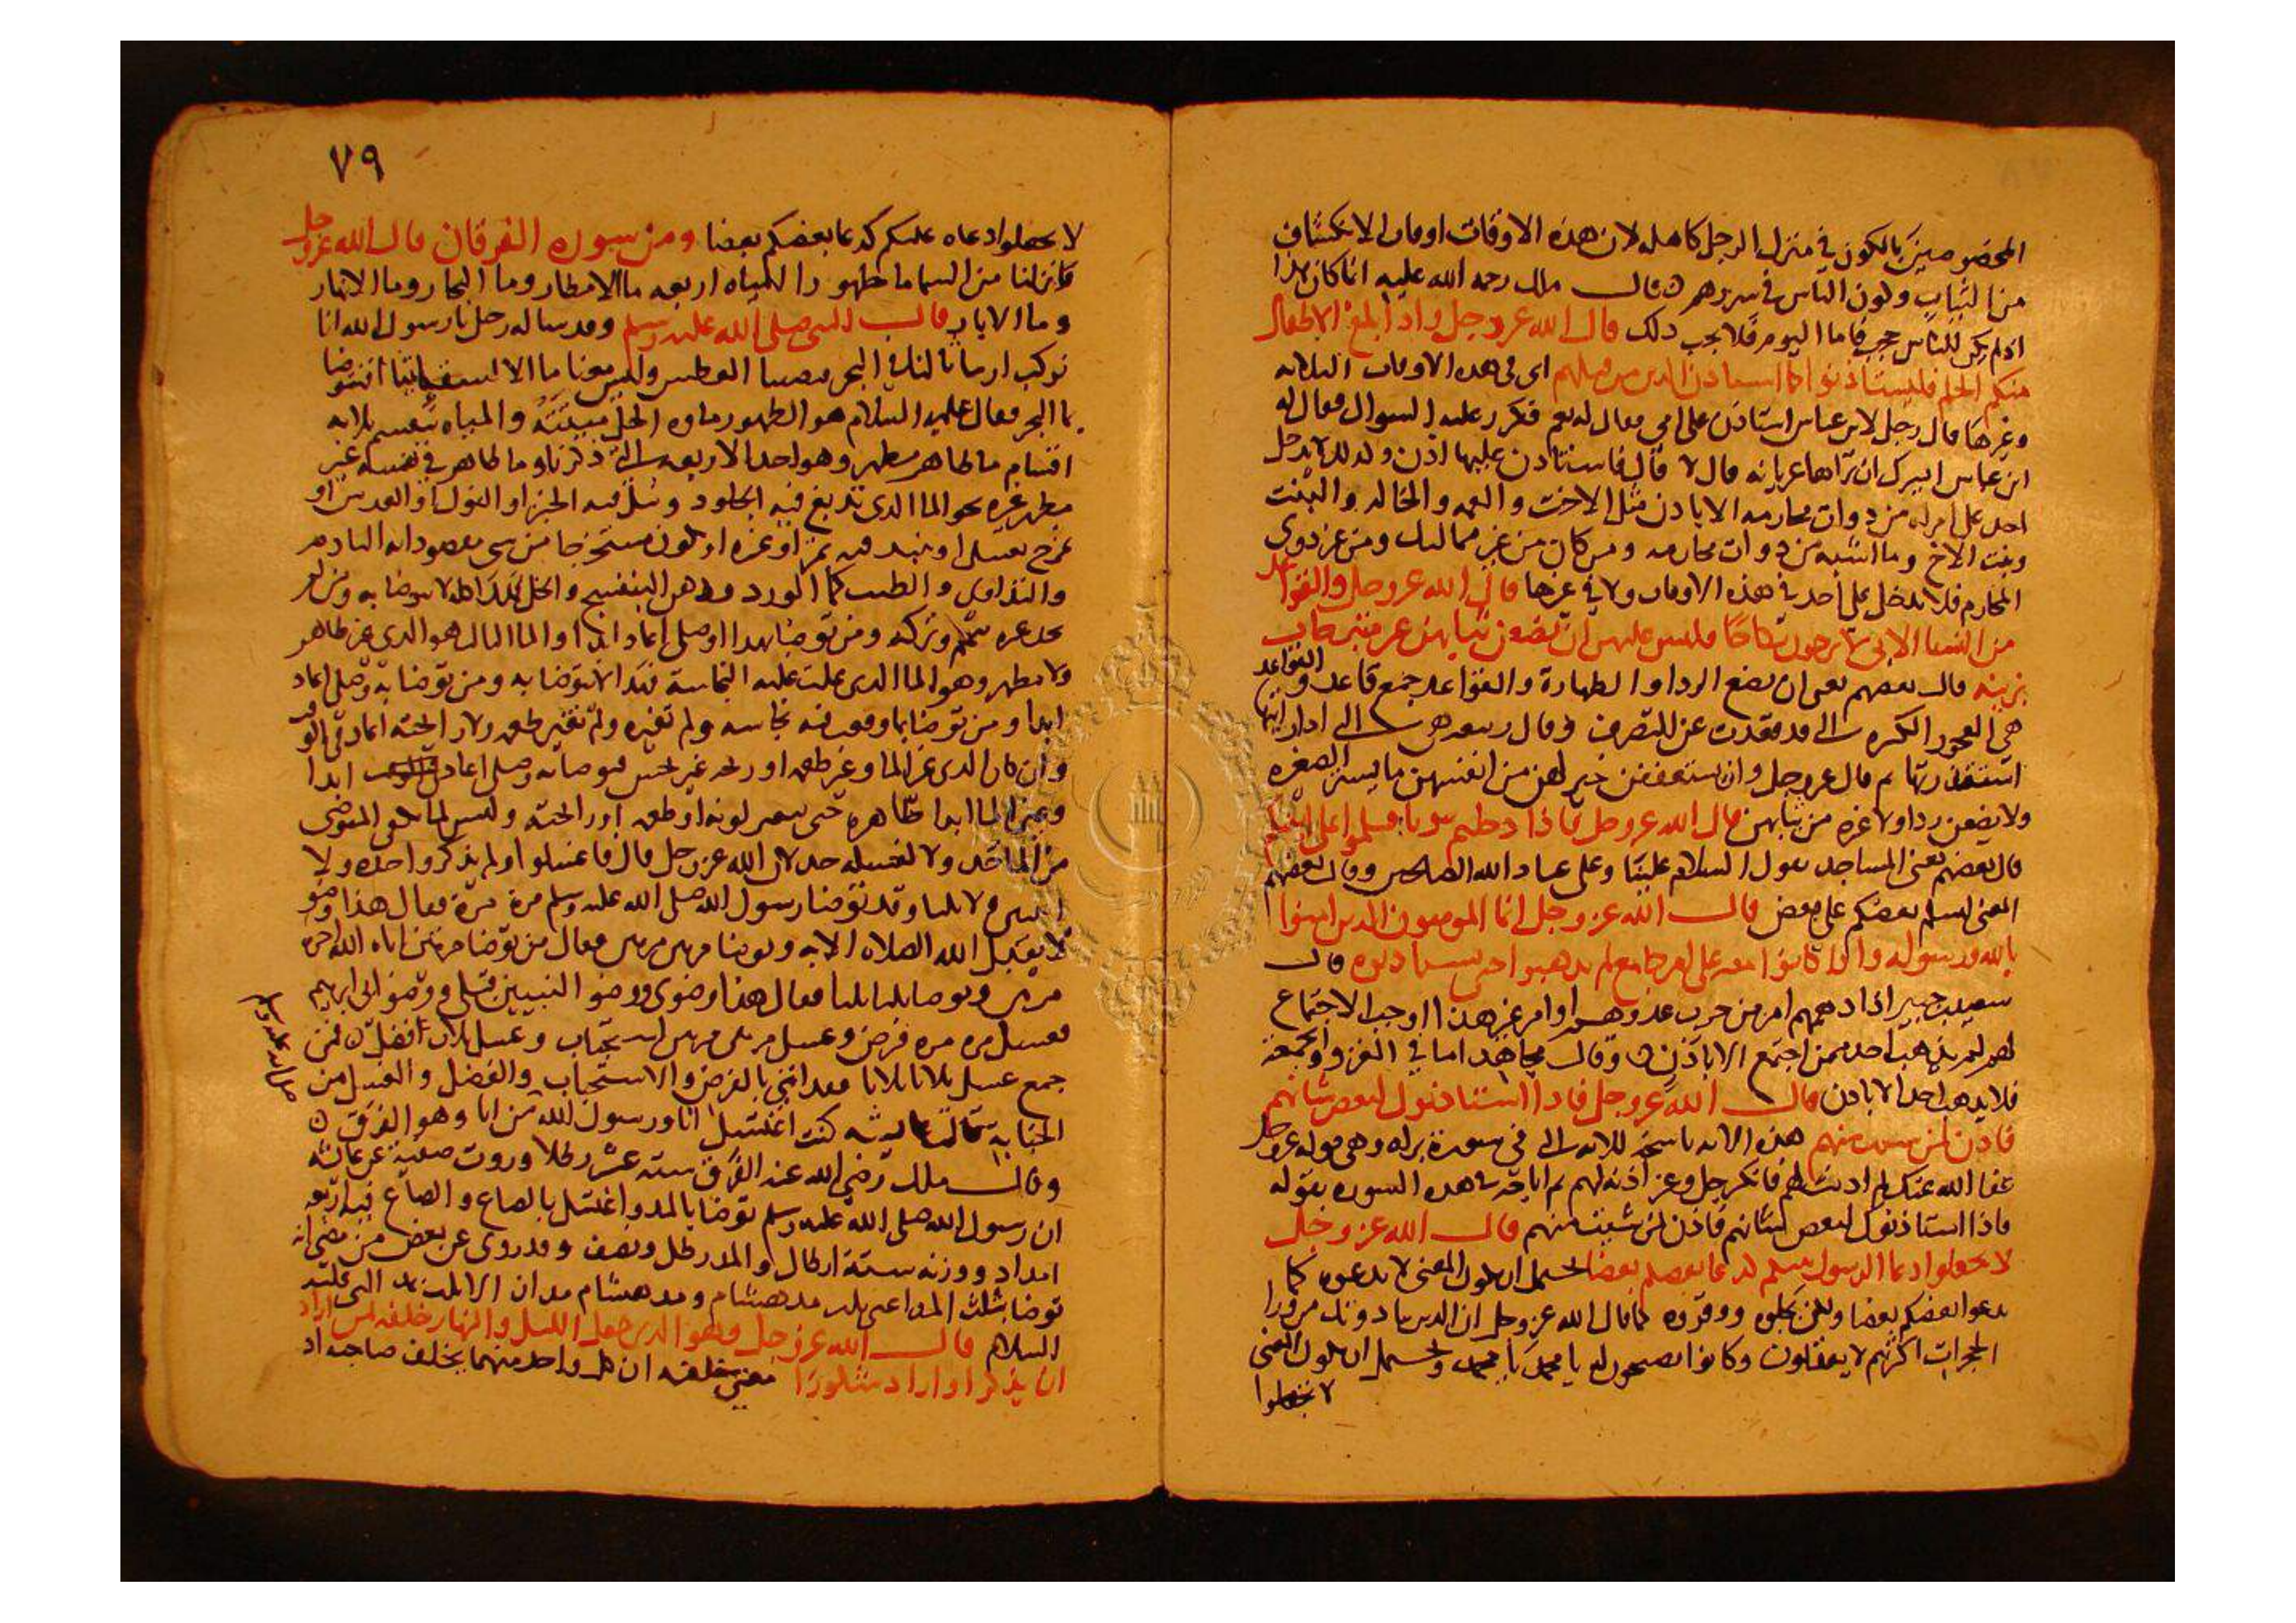 المخصوصين بالكون في منزل الرجل كاهله لان هذه الاوقات اوقات الانكشاف
من الثياب وكون الناس في سررهم قال ملك رحمه الله عليه انما كان هذا
اذ لم يكن للناس حجب فاما اليوم فلا يجب ذلك قال الله عز وجل واذا بلغ الاطفال
منكم الحلم فليستاذنوا كما استاذن الذين من قبلهم اى فى هذه الاوقات الثلاثه
وغيرها قال رجل لابن عباس استاذن على امي فقال له نعم فكرر عليه السوال فقال له
ابن عباس ايسرك ان تراها عريانه قال لا قال فاستاذن عليها اذن وكذلك لا يدخل
احد على امراه من ذوات محارمه الا باذن مثل الاخت والعمه والخاله والبنت
وبنت الاخ وما اشبه من ذوات محارمه ومن كان من غير مماليك ومن غير ذوى
المحارم فلا يدخل على احد في هذه الاوقات ولا في غيرها قال الله عز وجل والقواعد
من النسا الاتى لا يرجون نكاحا فليس عليهن ان يضعن ثيابهن غير متبرجات
بزينه قال بعضهم يعنى ان تضع الردا والطهارة والقواعد جمع قاعد والقواعد
هى العجوز الكبيره التى قد قعدت عن التصرف وقال ربيعه هى التى اذا رايتها
استقذرتها ثم قال عز وجل وان يستعففن خير لهن من انفسهن ما يستر الصغيره
ولا يضعن ردا ولا غيره من ثيابهن قال الله عز وجل فاذا دخلتم بيوتا فسلموا على انفسكم
قال بعضهم يعنى المساجد يقول السلام علينا وعلى عباد الله الصالحين وقال بعضهم
المعنى ليسلم بعضكم على بعض قال الله عز وجل انما المومنون الذين امنوا
بالله ورسوله واذا كانوا معه على امر جامع لم يذهبوا حتى يستاذنوه قال
سعيد بن جبير اذا دهمهم امر من حرب عدو او امر غير هذا اوجب الاجتماع
لهم لم يذهب احد ممن اجتمع الا باذن وقال مجاهد اما في الغزو والجمعه
فلا يذهب احد الا باذن قال الله عز وجل فاذا استاذنوك لبعض شانهم
فاذن لمن شيت منهم هذه الايه ناسخه للايه التى فى سورة براه وهى قوله عز وجل
عفا الله عنك لم اذنت لهم فانكر جل وعز اذنه لهم ثم اباحه في هذه السوره بقوله
فاذا استاذنوك لبعض شانهم فاذن لمن شيت منهم قال الله عز وجل
لا تجعلوا دعا الرسول بينكم كدعا بعضكم بعضا يحتمل ان يكون المعنى لا تدعوه كما
يدعوا بعضكم بعضا ولكن بجلوه ووقروه كما قال الله عز وجل ان الذين ينادونك من ورا
الحجرات اكثرهم لا يعقلون وكانوا يصيحون له يا محمد يا محمد ويحتمل ان يكون المعنى
لا تجعلوا
٧٩
لا تجعلوا دعاه عليكم كدعا بعضكم بعضا ومن سوره الفرقان قال الله عز وجل
فانزلنا من السما ما طهورا المياه اربعه ما الامطار وما البحار وما الانهار
وما الابار قال النبى صلى الله عليه وسلم وقد ساله رجل يا رسول الله انا
نركب ارماثا لنا في البحر فيصيبنا العطش وليس معنا ما الا لسقياتنا افنتوضا
بما البحر فقال عليه السلام هو الطهور ماوه الحل ميتته والمياه تنقسم ثلاثه
اقسام ما طاهر مطهر وهو احد الاربعه التى ذكرنا وما طاهر في نفسه غير
مطهر غيره نحو الما الذى تدبغ فيه الجلود وتبل فيه الخبز او الفول او العدس او
يمزج بعسل او ينبذ فيه تمر او غيره او يكون مستخرجا من شى مقصود
والطيب كما الورد ودهن البنفسج والخل لا يتوضا به ومن لم
يجد غيره تيمم وتركه ومن توضا بهذا وصلى اعاد ابدا والما الثالث هو الذى غير طاهر
ولا مطهر وهو الما الذى غلبت عليه النجاسة فهذا لا يتوضا به ومن توضا به وصلى اعاد
ابدا ومن توضا بما وقعت فيه نجاسه ولم تغيره ولم تغير طعمه ولا رايحته اعاد في الوقت
وان كان الذى غير الما وغير طعمه او ريحه غير نجس فتوضا به وصلى اعاد ابدا
الما ابدا طاهره حتى يتغير لونه او طعمه او رايحته وليس لما يكفى المتوضى
من الما حد ولا لغسله حد لان الله عز وجل قال فاغسلوا ولم يذكر واحده ولا
اثنتين ولا ثلثا وقد توضا رسول الله صلى الله عليه وسلم مرة مرة فقال هذا وضو
لا يقبل الله الصلاه الا به وتوضا مرتين مرتين فقال من توضا مرتين اتاه الله اجره
مرتين وتوضا ثلثا ثلثا فقال هذا وضوى ووضو النبيين قبلى ووضو ابى ابرهيم
صلى الله عليه وسلم
فغسل مره مره فرض وغسل مرتين مرتين استحباب وغسل ثلاث افضل فمن
جمع غسل ثلاثا ثلاثا فقد اتى بالفرض والاستحباب والفضل والغسل من
الجنابة قالت عايشه كنت اغتسل انا ورسول الله من انا وهو الفرق
وقال ملك رضى الله عنه الفرق سته عشر رطلا وروت صفية عن عائشه
ان رسول الله صلى الله عليه وسلم توضا بالمد واغتسل بالصاع والصاع فيه اربعه
امداد ووزنه ستة ارطال والمد رطل ونصف وقد روى عن بعض من مضى انه
توضا بثلث المد اعنى بثلث مد هشام ومد هشام مدان الا ثلث بمد النبى عليه
السلام قال الله عز وجل وهو الذى جعل الليل والنهار خلفه لمن اراد
ان يذكر او اراد شكورا معنى خلفه ان كل واحد منهما يخلف صاحبه اذ